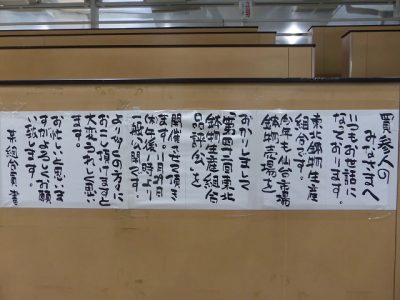 買参人の
みなさまへ
いつもお世話に
なっております。
東北鉢物生産
組合です。
今年も仙台市場
鉢物売場を
おかりまして
回東北
鉢物生産組合
品評会」を
開催させて頂き
ます。
午後一時より
一般公開です
より多くの方々に
おこし頂けますと
大変うれしく思い
ます。
お忙しいと思いま
すがよろしくお願
い致します。
某組合員 書